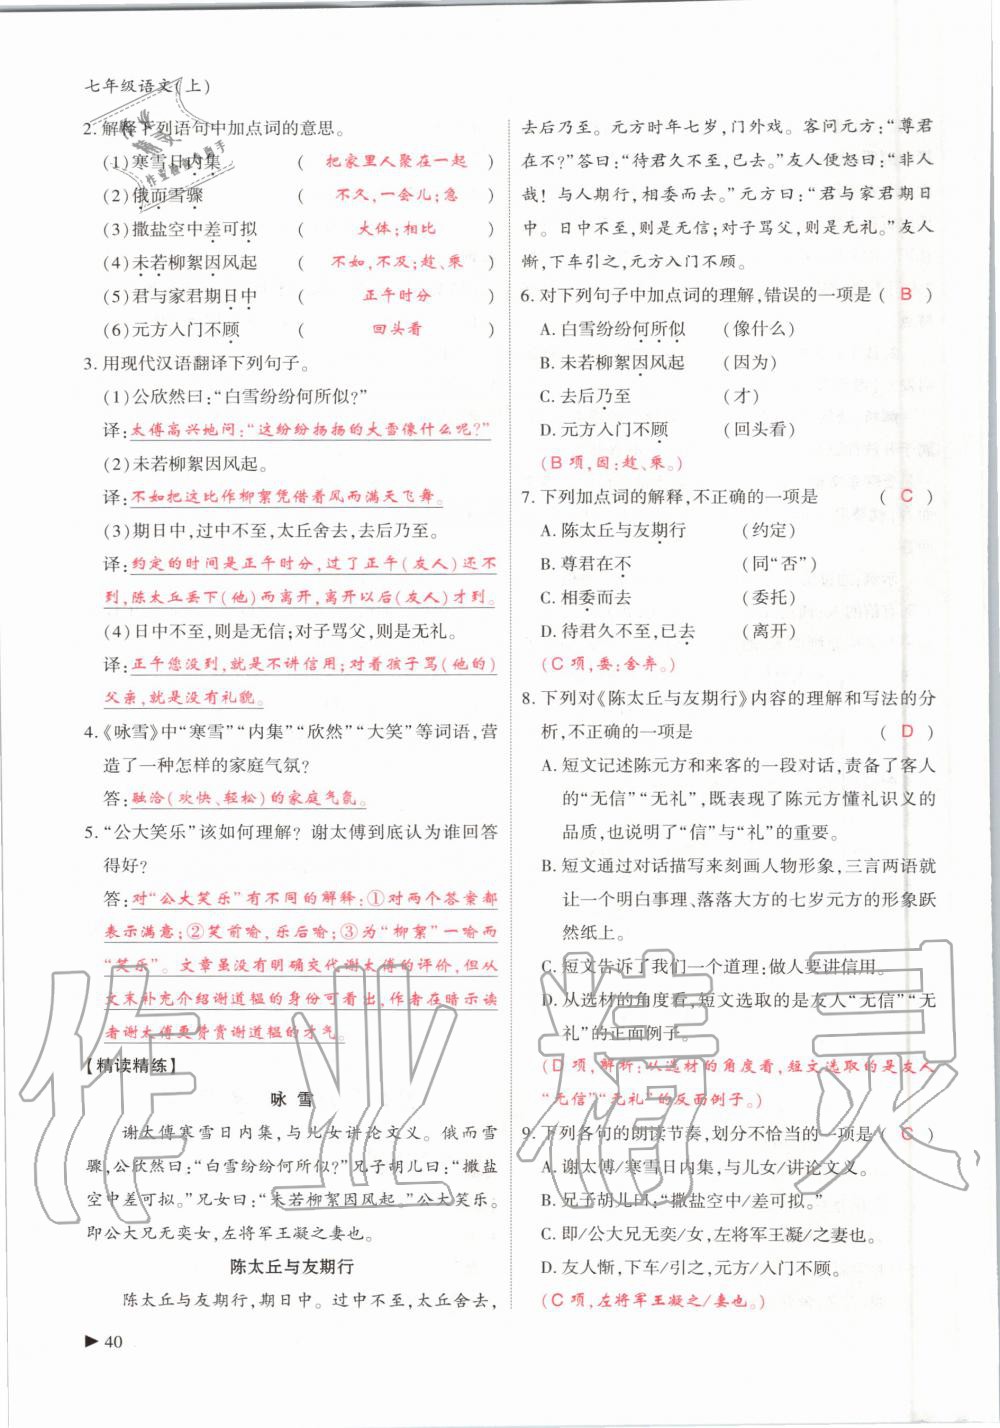 七年级语文(上)
2. 解释下列语句中加点词的意思。
(1)寒雪日内集 ( 把家里人聚在一起 )
(2)俄而雪骤 ( 不久,一会儿;急 )
(3)撒盐空中差可拟 ( 大体;相比 )
(4)未若柳絮因风起 ( 不如,不及;趁、乘 )
(5)君与家君期日中 ( 正午时分 )
(6)元方入门不顾 ( 回头看 )
3. 用现代汉语翻译下列句子。
(1)公欣然曰:“白雪纷纷何所似?”
译:太傅高兴地问:“这纷纷扬扬的大雪像什么呢?”
(2)未若柳絮因风起。
译:不如把这比作柳絮凭借着风而满天飞舞。
(3)期日中,过中不至,太丘舍去,去后乃至。
译:约定的时间是正午时分,过了正午(友人)还不
到,陈太丘丢下(他)而离开,离开以后(友人)才到。
(4)日中不至,则是无信;对子骂父,则是无礼。
译:正午您没到,就是不讲信用;对着孩子骂(他的)
父亲,就是没有礼貌。
4.《咏雪》中“寒雪”“内集”“欣然”“大笑”等词语,营
造了一种怎样的家庭气氛?
答:融洽(欢快、轻松)的家庭气氛。
5. “公大笑乐”该如何理解? 谢太傅到底认为谁回答
得好?
答:对“公大笑乐”有不同的解释:①对两个答案都
表示满意;②笑前喻,乐后喻;③为“柳絮”一喻而
“笑乐”。文章虽没有明确交代谢太傅的评价,但从
文末补充介绍谢道韫的身份可看出,作者在暗示读
者谢太傅更赞赏谢道韫的才气。
【精读精练】
咏 雪
谢太傅寒雪日内集,与儿女讲论文义。俄而雪
骤,公欣然曰:“白雪纷纷何所似?”兄子胡儿曰:“撒盐
空中差可拟。”兄女曰:“未若柳絮因风起。”公大笑乐。
即公大兄无奕女,左将军王凝之妻也。
陈太丘与友期行
陈太丘与友期行,期日中。过中不至,太丘舍去,
去后乃至。元方时年七岁,门外戏。客问元方:“尊君
在不?”答曰:“待君久不至,已去。”友人便怒曰:“非人
哉! 与人期行,相委而去。”元方曰:“君与家君期日
中。日中不至,则是无信;对子骂父,则是无礼。”友人
惭,下车引之,元方入门不顾。
6. 对下列句子中加点词的理解,错误的一项是 ( B )
A. 白雪纷纷何所似 (像什么)
B. 未若柳絮因风起 (因为)
C. 去后乃至 (才)
D. 元方入门不顾 (回头看)
(B项,因:趁、乘。)
7. 下列加点词的解释,不正确的一项是 ( C )
A. 陈太丘与友期行 (约定)
B. 尊君在不 (同“否”)
C. 相委而去 (委托)
D. 待君久不至,已去 (离开)
(C项,委:舍弃。)
8. 下列对《陈太丘与友期行》内容的理解和写法的分
析,不正确的一项是 ( D )
A. 短文记述陈元方和来客的一段对话,责备了客人
的“无信”“无礼”,既表现了陈元方懂礼识义的
品质,也说明了“信”与“礼”的重要。
B. 短文通过对话描写来刻画人物形象,三言两语就
让一个明白事理、落落大方的七岁元方的形象跃
然纸上。
C. 短文告诉了我们一个道理:做人要讲信用。
D. 从选材的角度看,短文选取的是友人“无信”“无
礼”的正面例子。
(D项,解析:从选材的角度看,短文选取的是友人
“无信”“无礼”的反面例子。)
9. 下列各句的朗读节奏,划分不恰当的一项是( C )
A. 谢太傅/寒雪日内集,与儿女/讲论文义。
B. 兄子胡儿曰:“撒盐空中/差可拟。”
C. 即/公大兄无奕女,左将军王凝之/妻也。
D. 友人惭,下车/引之,元方/入门不顾。
(C项,左将军/王凝之/妻也。)
▶ 40
作业精灵